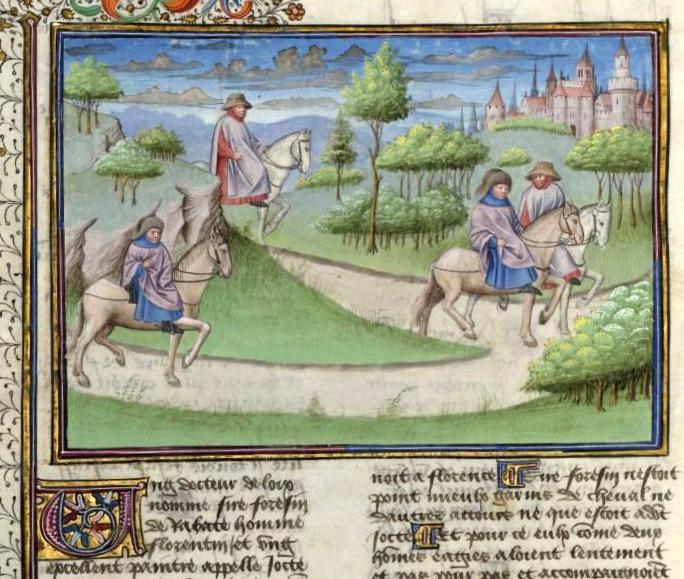 Ung docteur de loix
nomme sire foresin
de Rabate homme
florentin et ung
excellent paintre appelle Jocte
noit a florence Sire foresin nestoit
point mieulx garnis de cheval ne
dautres attours ne que estoit
Jocte Et pour ce eulx come deux
homes eagies aloient lentement
et pas pour pas et accompaignoiet